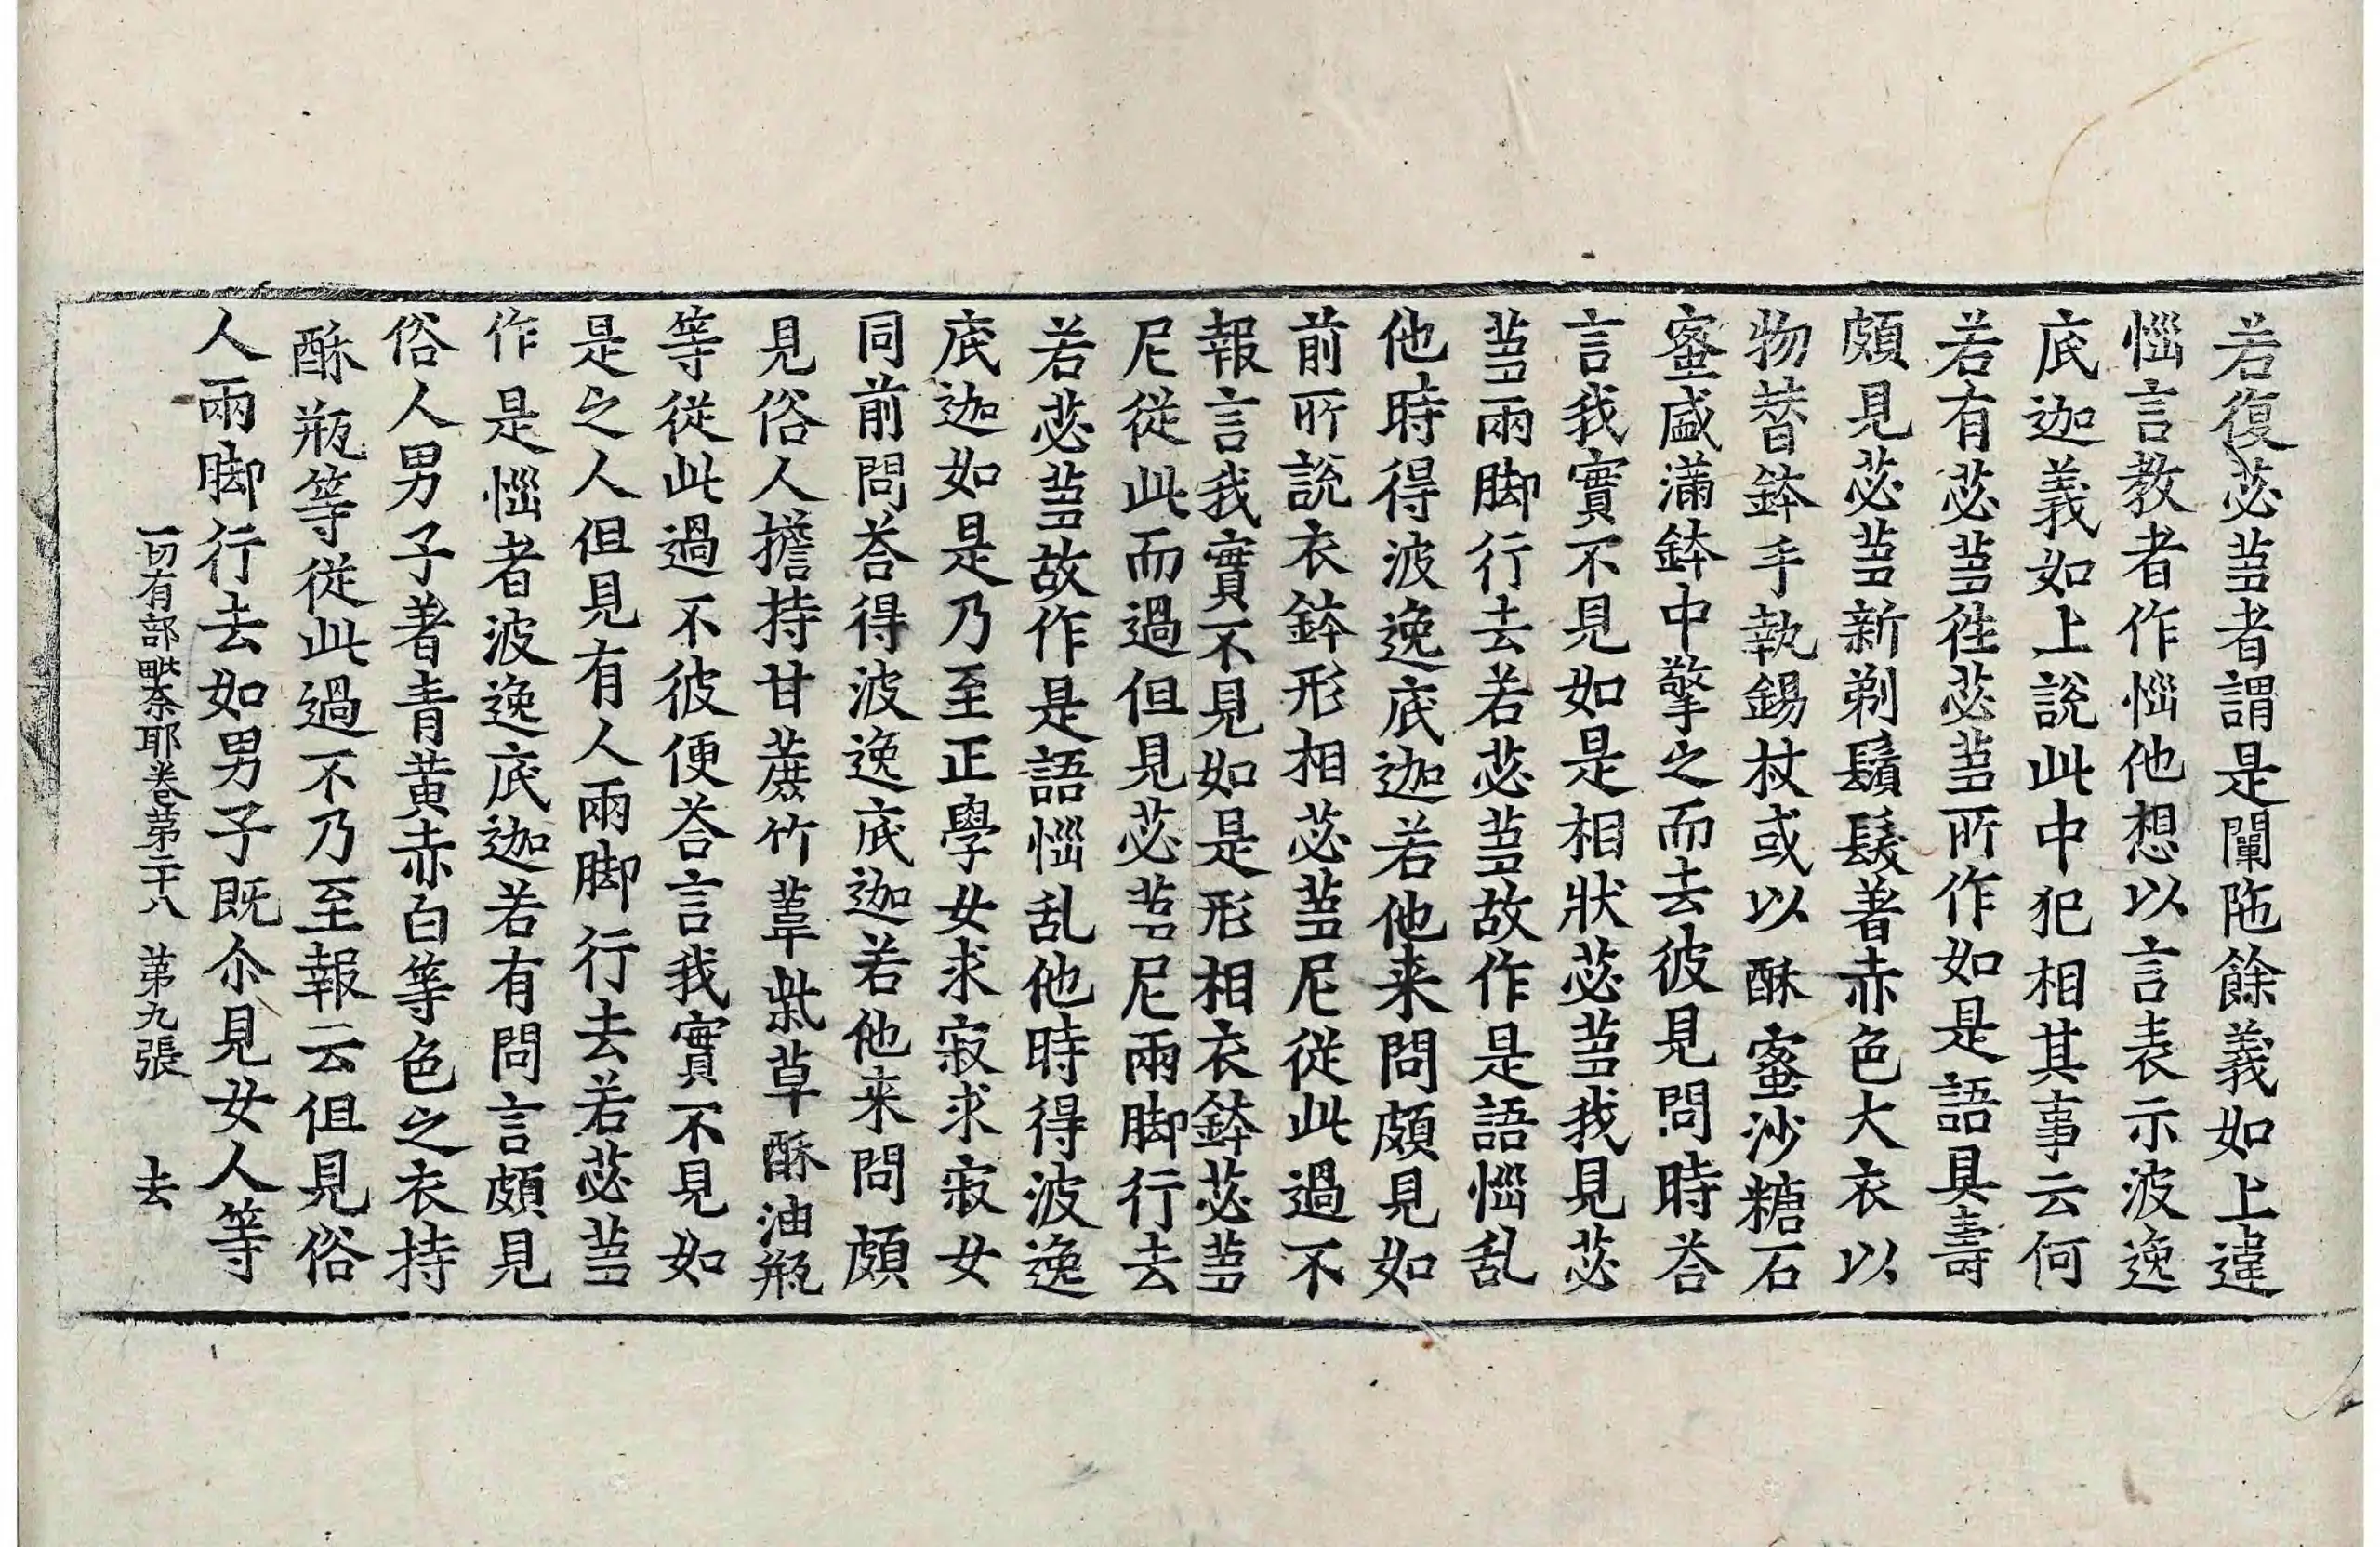 若復苾芻者謂是闡陁餘義如上違
惱言教者作惱他想以言表示波逸
底迦義如上說此中犯相其事云何
若有苾芻往苾芻所作如是語具壽
頗見苾芻新剃鬚髮著赤色大衣以
物替鉢手執錫杖或以酥蜜沙糖石
蜜盛滿鉢中擎之而去彼見問時荅
言我實不見如是相狀苾芻我見苾
芻兩脚行去若苾芻故作是語惱乱
他時得波逸底迦若他来問頗見如
前所說衣鉢形相苾芻尼從此過不
報言我實不見如是形相衣鉢苾芻
尼從此而過但見苾芻尼兩脚行去
若苾芻故作是語惱乱他時得波逸
底迦如是乃至正學女求寂求寂女
同前問荅得波逸底迦若他来問頗
見俗人擔持甘蔗竹葦柴草酥油瓶
等從此過不彼便荅言我實不見如
是之人但見有人兩脚行去若苾芻
作是惱者波逸底迦若有問言頗見
俗人男子著青黄赤白等色之衣持
酥瓶等從此過不乃至報云但見俗
人兩脚行去如男子既尒見女人等
一切有部毗奈耶卷第二十八 第九張 去